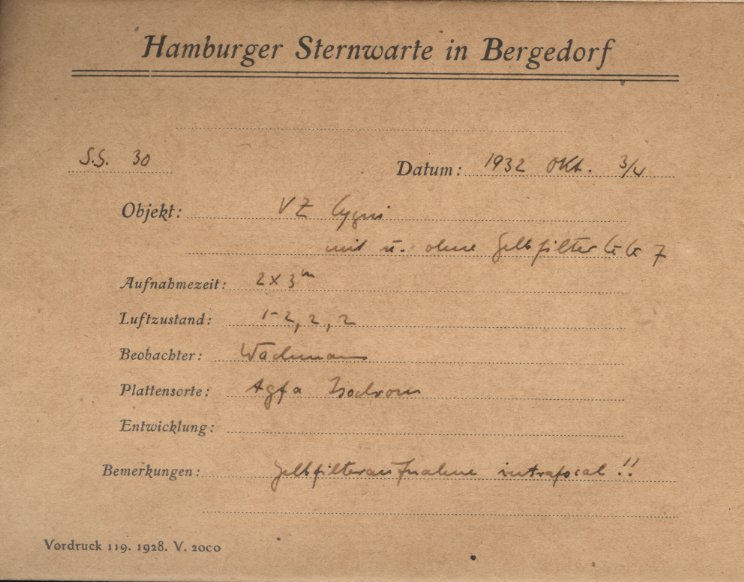 Hamburger Sternwarte in Bergedorf
S.S. 30 Datum: 1932 Okt. 3/4
Objekt: VZ Cygni
mit u. ohne Gelbfilter GG 7
Aufnahmezeit: 2 x 3m
Luftzustand: 1-2, 2, 2
Beobachter: Wachmann
Plattensorte: Agfa Isochrom
Entwicklung:
Bemerkungen: Gelbfilteraufnahme intrafocal!!
Vordruck 119. 1928. V. 2000